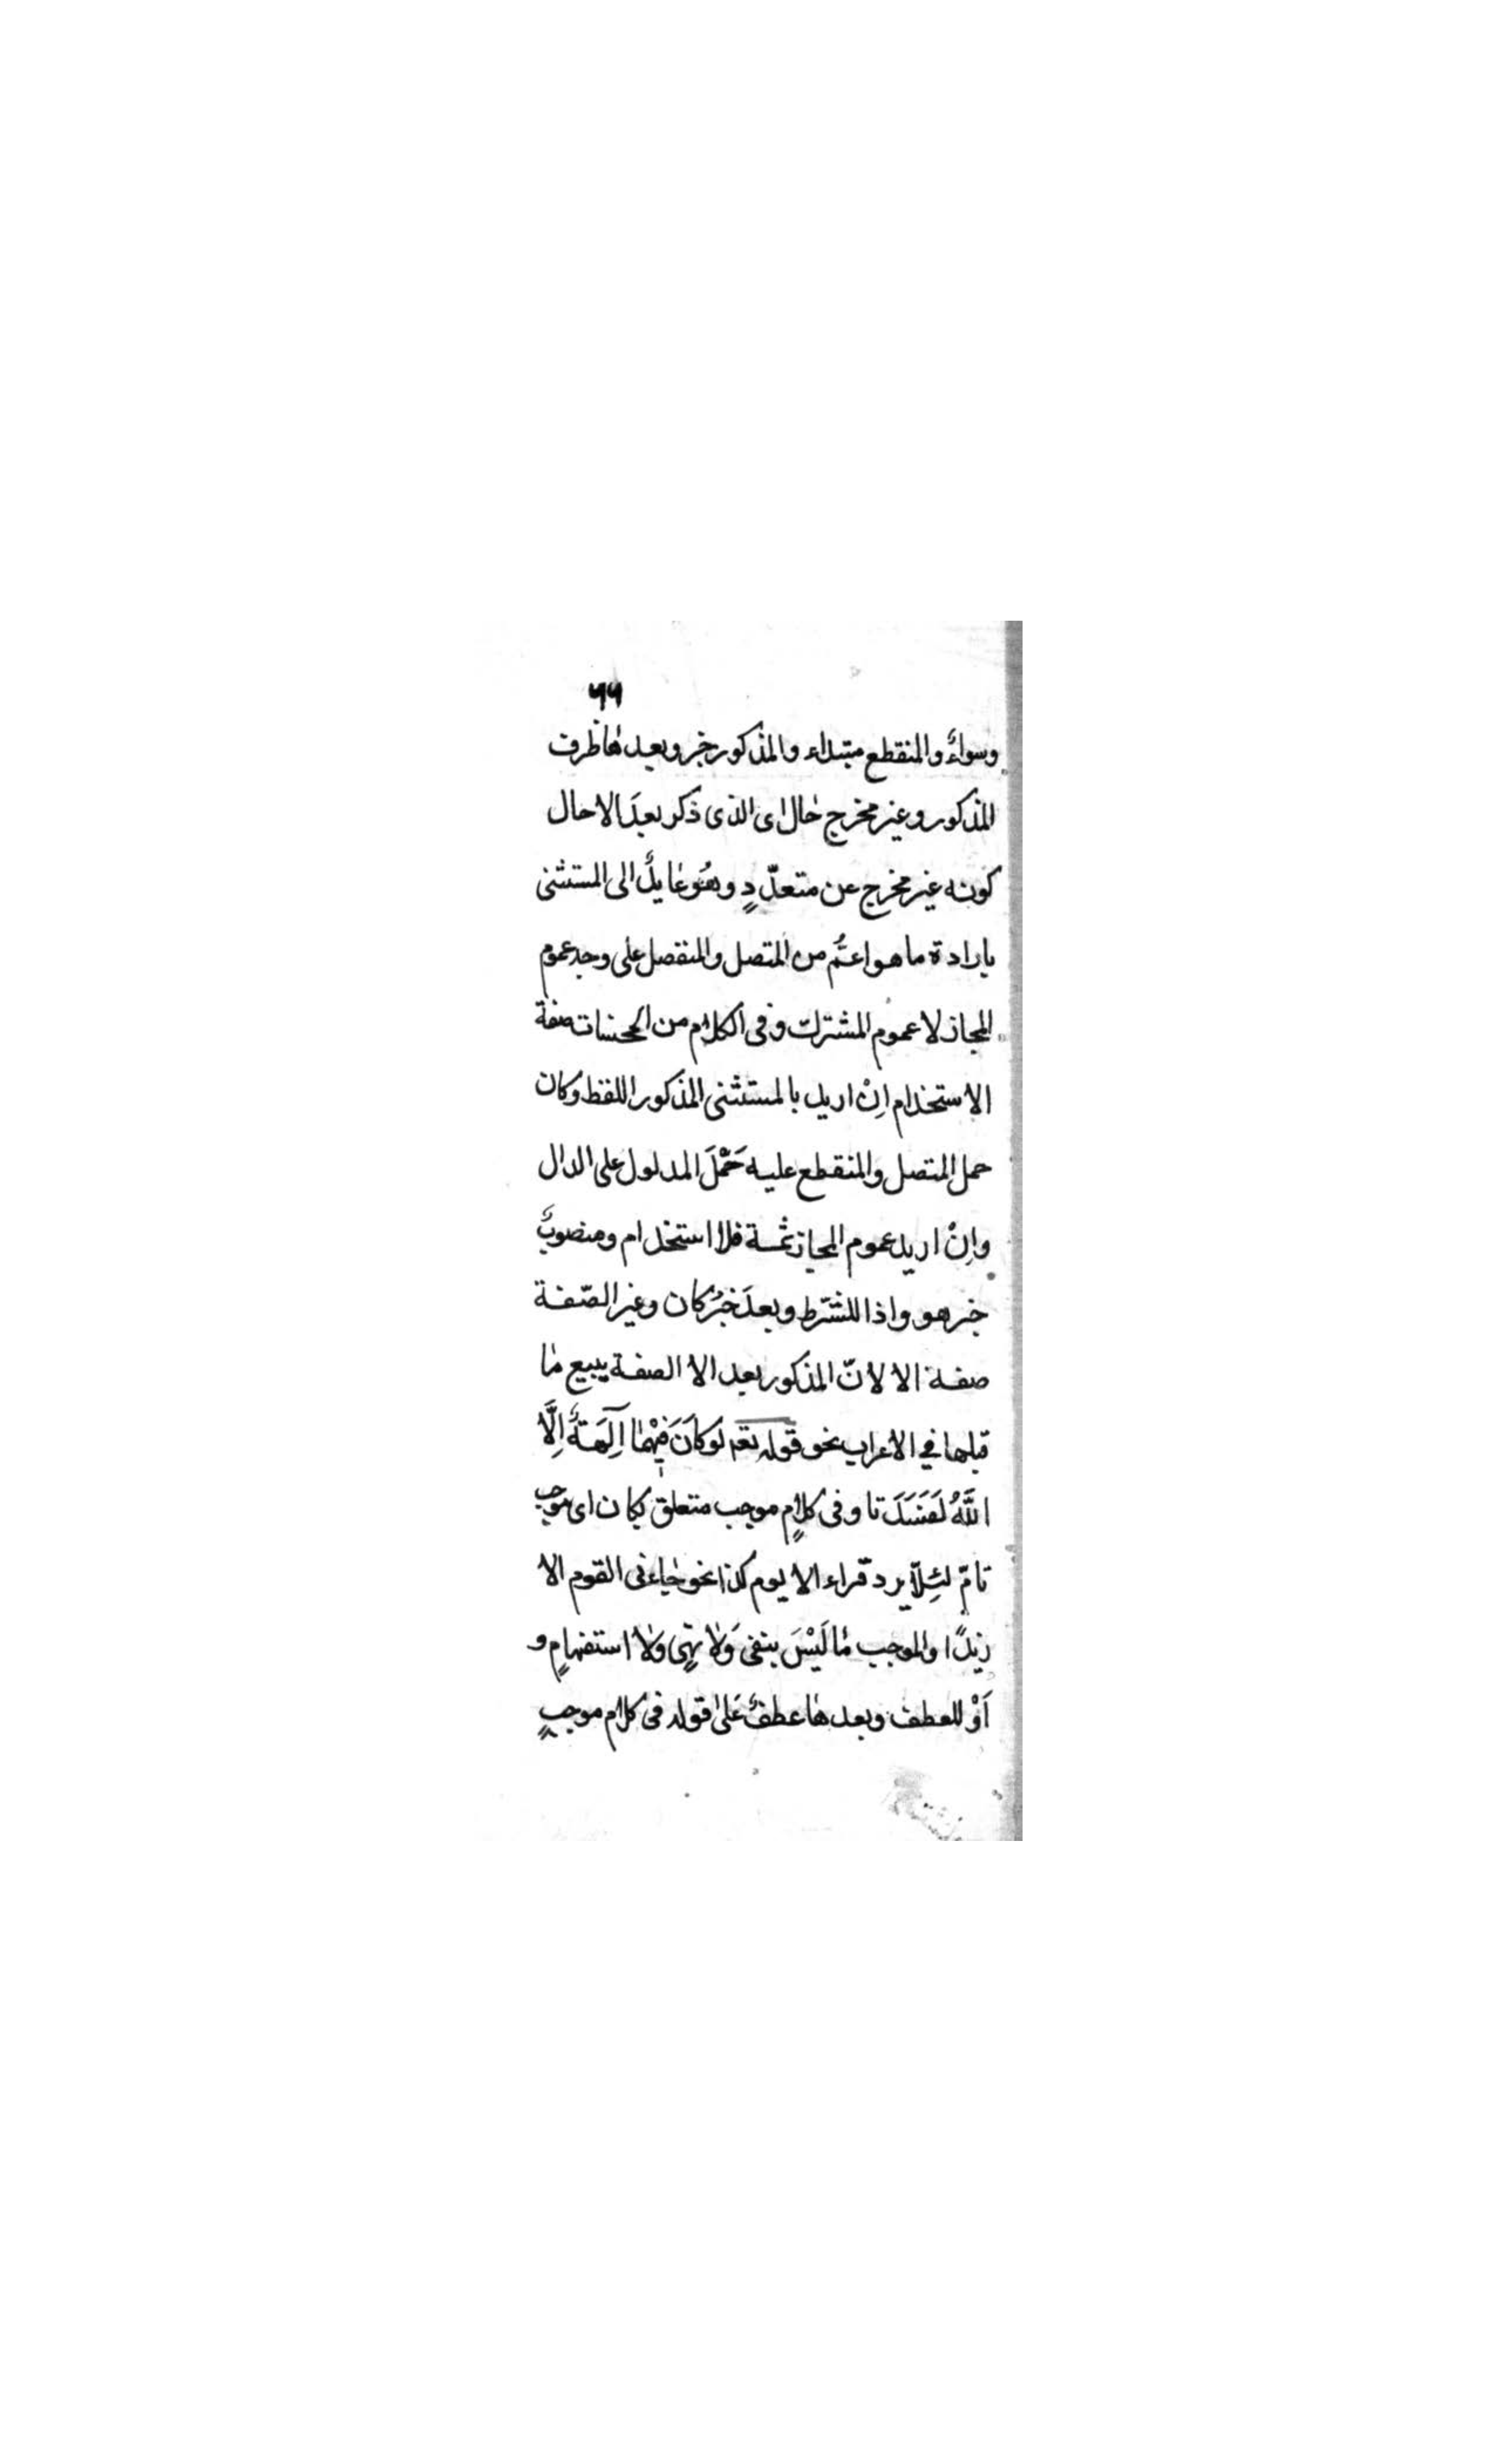 ٦٦
وسواءٌ والمنقطع مبتداء والمذكور خبر وبعدها ظرف
المذكور وغير مخرج حال اى الذى ذكر بعدَ الا حال
كونه غير مخرج عن متعدّدٍ وهُو عايدٌ الى المستثنى
بارادة ما هو اعمُّ من المتصل والمنفصل على وجه عموم
المجاز لا عموم المشترك وفى الكلام من المحسنات صفة
الاستخدام اِنْ اريد بالمستثنى المذكور اللفظ وكان
حمل المتصل والمنقطع عليه حَمْلَ المدلول على الدال
واِنْ اريد عموم المجاز ثمة فلا استخدام ومنصوبٌ
خبر هو واذا للشّرط وبعدَ خبرُ كان وغير الصّفة
صفة الا لانّ المذكور بعد الا الصفة يبيع ما
قبلها في الاعراب نحو قوله تعم لوكاَنَ فِيْهِمٰا آلِهَةٌ اِلَّا
اللَّهُ لَفَسَدَتا وفى كلامٍ موجب متعلق بكان اى موجب
تامّ لئِلّا يرد قراء الا يوم كذا نحو جاءنى القوم الا
زيدًا والموجب مٰا لَيْسَ بنفى وَلا نهىٍ ولا استفهامٍ و
اَوْ للعطف وبعدهٰا عطفٌ عَلىٰ قوله فى كلام موجبٍ